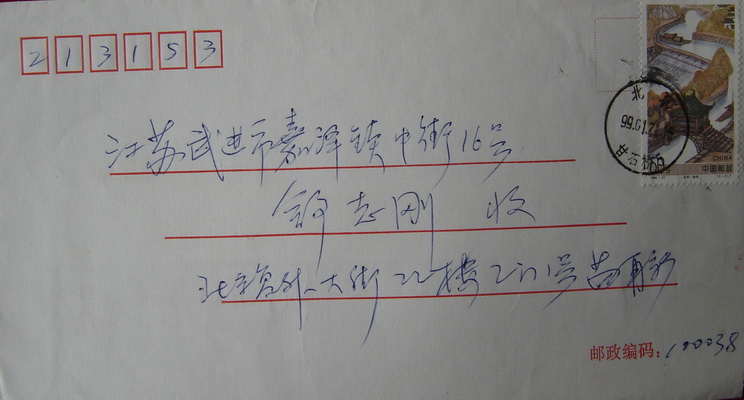 213153
江苏武进市嘉泽镇中街16号
志刚 收
北京复外大街22楼2门1号
邮政编码：100038
北
99.01.21
甘石桥
CHINA
中国邮政